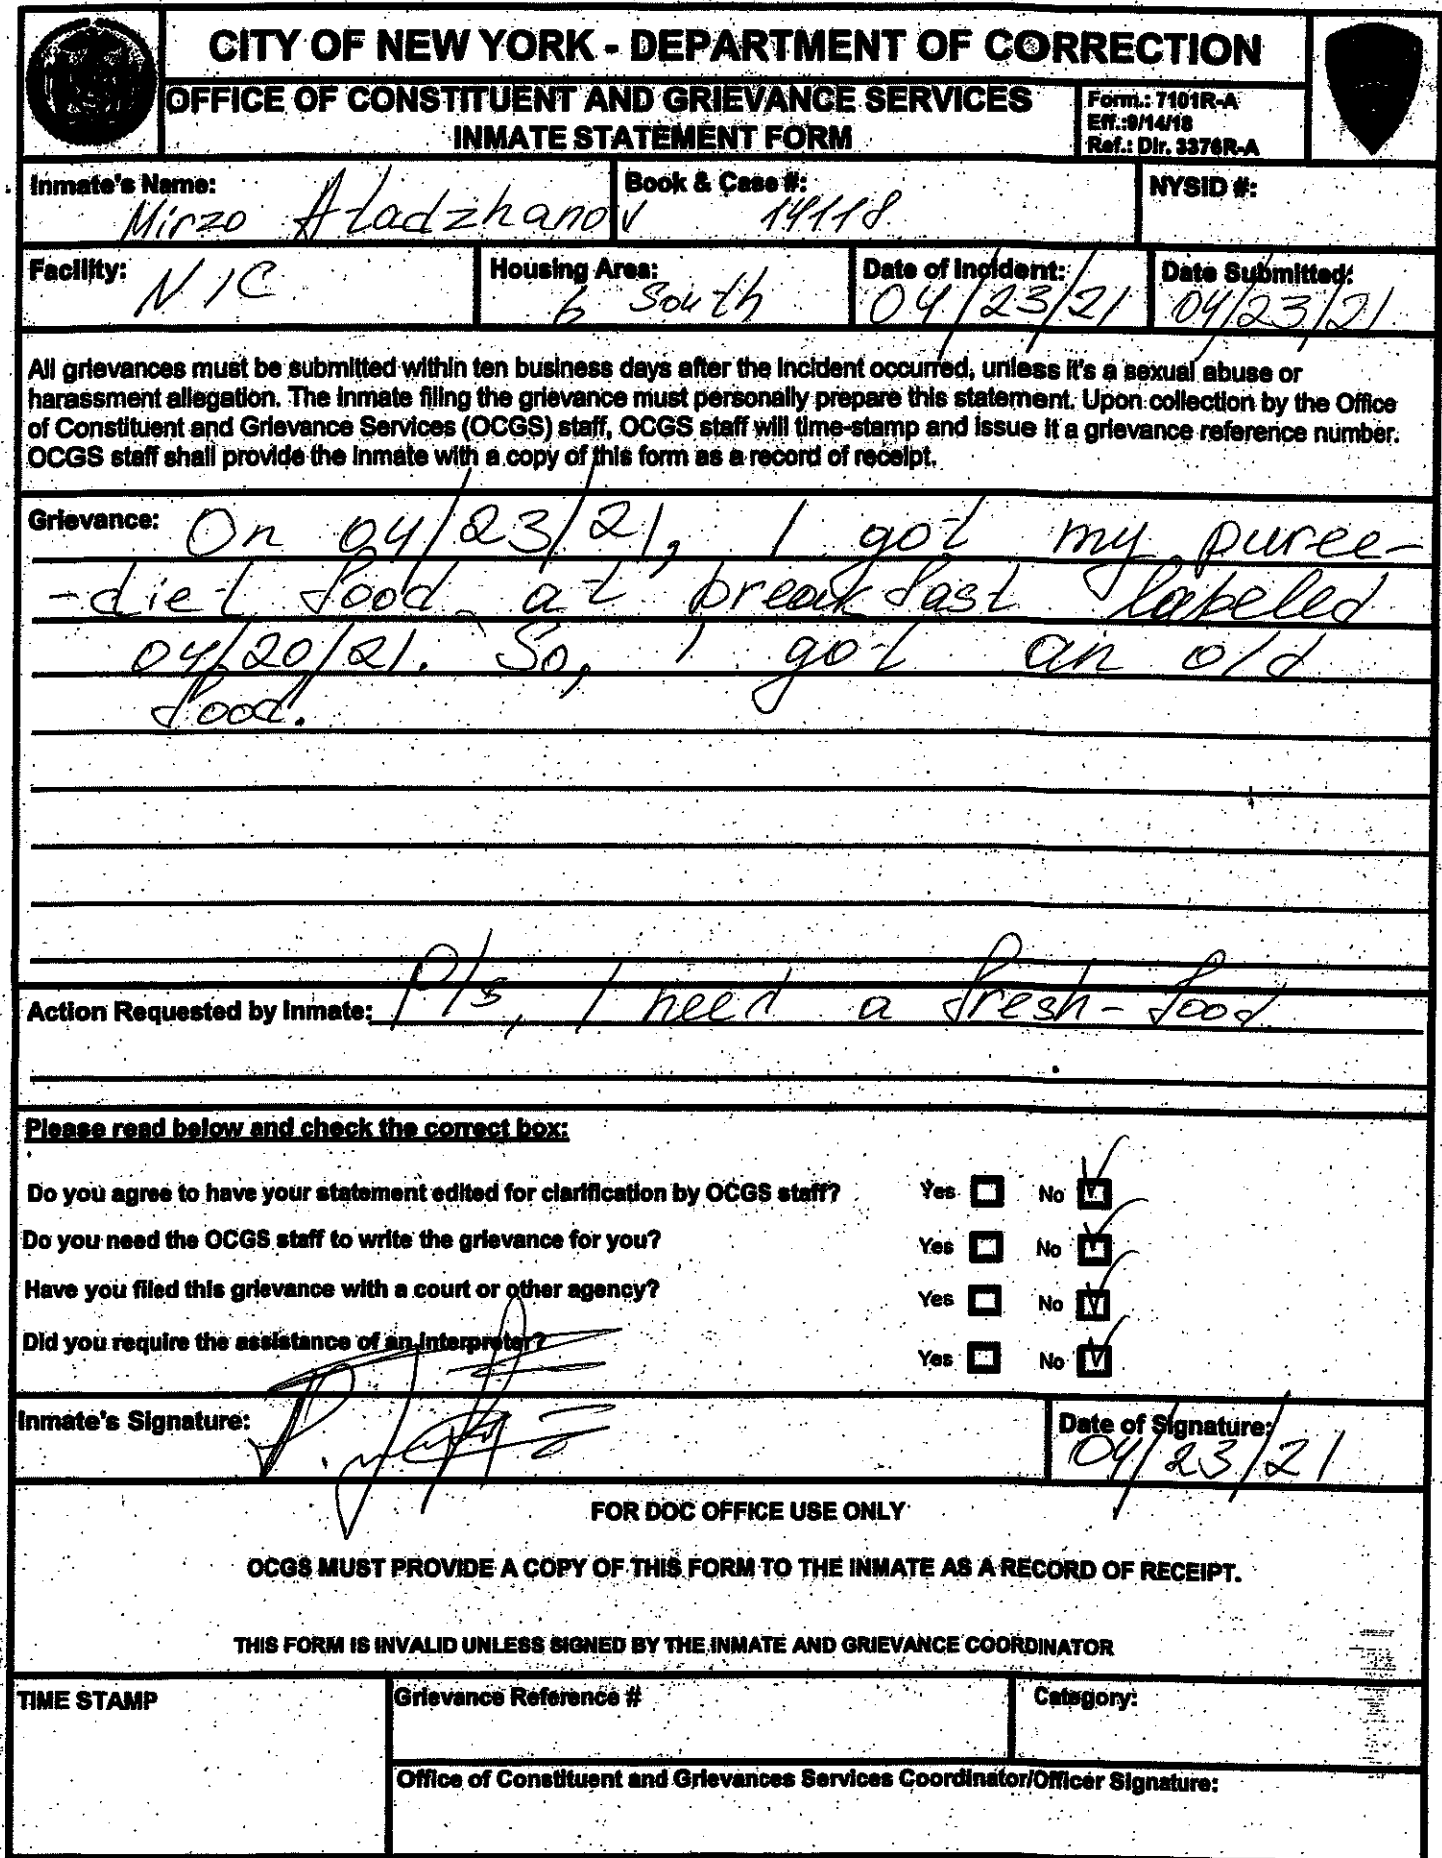 CITY OF NEW YORK - DEPARTMENT OF CORRECTION
OFFICE OF CONSTITUENT AND GRIEVANCE SERVICES
INMATE STATEMENT FORM
Form.: 7101R-A
Eff.:9/14/18
Ref.: Dir. 3376R-A
Inmate's Name: Mirzo Atadzhanov
Book & Case #: 14118
NYSID #:
Facility: NIC
Housing Area: 6 South
Date of Incident: 04/23/21
Date Submitted: 04/23/21
All grievances must be submitted within ten business days after the incident occurred, unless it's a sexual abuse or
harassment allegation. The inmate filing the grievance must personally prepare this statement. Upon collection by the Office
of Constituent and Grievance Services (OCGS) staff, OCGS staff will time-stamp and issue it a grievance reference number.
OCGS staff shall provide the inmate with a copy of this form as a record of receipt.
Grievance: On 04/23/21, I got my puree-
-diet food at breakfast labeled
04/20/21. So, I got an old
food.
Action Requested by Inmate: Pls, I need a fresh-food
Please read below and check the correct box:
Do you agree to have your statement edited for clarification by OCGS staff? Yes No
Do you need the OCGS staff to write the grievance for you? Yes No
Have you filed this grievance with a court or other agency? Yes No
Did you require the assistance of an interpreter? Yes No
Inmate's Signature:
Date of Signature: 04/23/21
FOR DOC OFFICE USE ONLY
OCGS MUST PROVIDE A COPY OF THIS FORM TO THE INMATE AS A RECORD OF RECEIPT.
THIS FORM IS INVALID UNLESS SIGNED BY THE INMATE AND GRIEVANCE COORDINATOR
TIME STAMP
Grievance Reference #
Category:
Office of Constituent and Grievances Services Coordinator/Officer Signature: